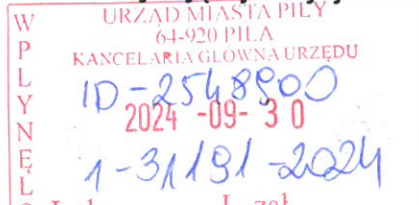 WPŁYNĘŁO
URZĄD MIASTA PIŁY
64-920 PIŁA
KANCELARIA GŁÓWNA URZĘDU
ID-2548900
2024 -09- 30
1-31191-2024